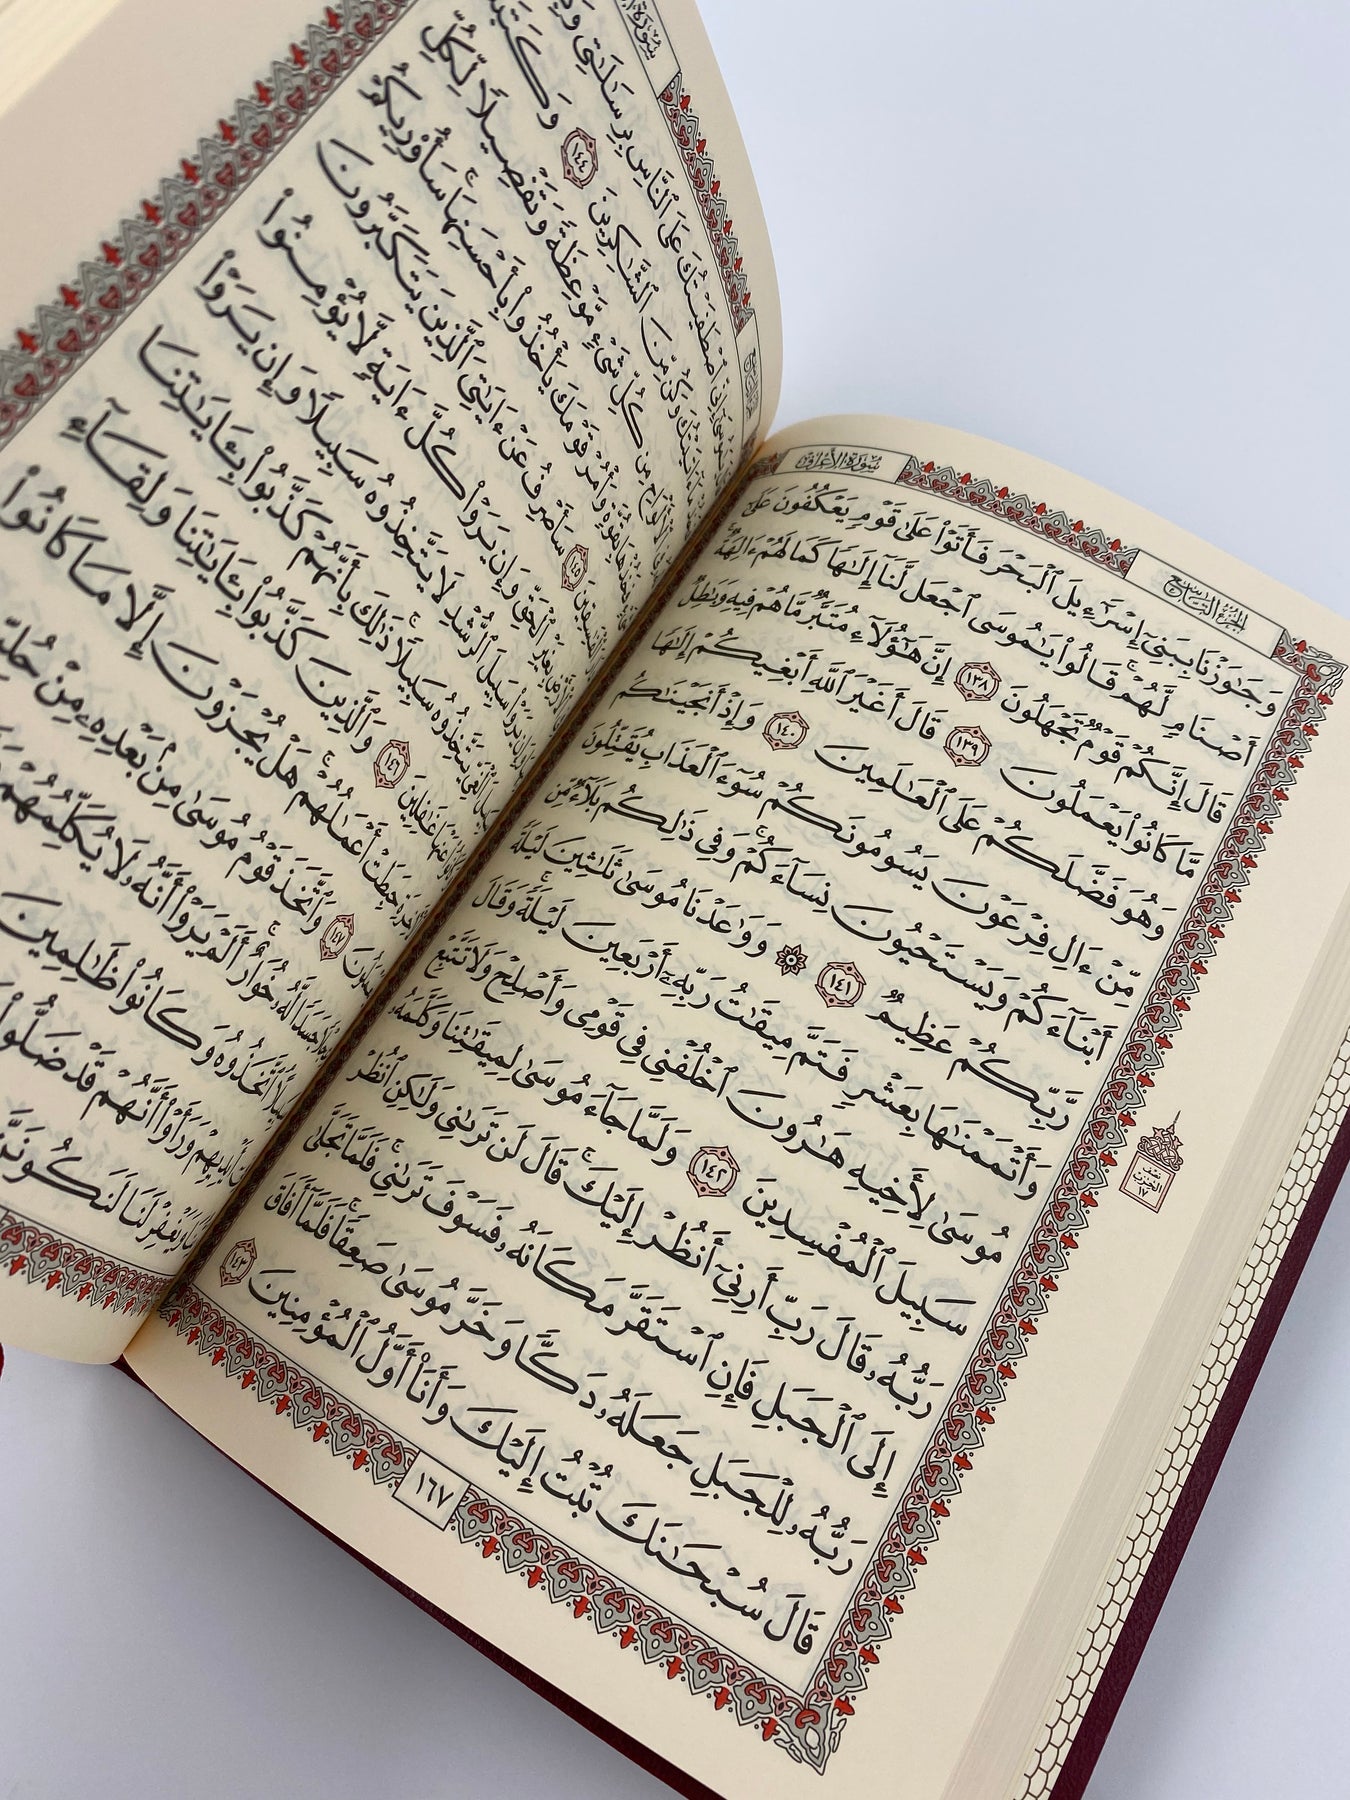 الجزء التاسع
سورة الأعراف
وَجَٰوَزْنَا بِبَنِيٓ إِسْرَٰٓءِيلَ ٱلْبَحْرَ فَأَتَوْا۟ عَلَىٰ قَوْمٍ يَعْكُفُونَ عَلَىٰٓ
أَصْنَامٍ لَّهُمْ ۚ قَالُوا۟ يَٰمُوسَى ٱجْعَل لَّنَآ إِلَٰهًا كَمَا لَهُمْ ءَالِهَةٌ ۚ
قَالَ إِنَّكُمْ قَوْمٌ تَجْهَلُونَ ١٣٨ إِنَّ هَٰٓؤُلَآءِ مُتَبَّرٌ مَّا هُمْ فِيهِ وَبَٰطِلٌ
مَّا كَانُوا۟ يَعْمَلُونَ ١٣٩ قَالَ أَغَيْرَ ٱللَّهِ أَبْغِيكُمْ إِلَٰهًا
وَهُوَ فَضَّلَكُمْ عَلَى ٱلْعَٰلَمِينَ ١٤٠ وَإِذْ أَنجَيْنَٰكُم
مِّنْ ءَالِ فِرْعَوْنَ يَسُومُونَكُمْ سُوٓءَ ٱلْعَذَابِ يُقَتِّلُونَ
أَبْنَآءَكُمْ وَيَسْتَحْيُونَ نِسَآءَكُمْ ۚ وَفِي ذَٰلِكُم بَلَآءٌ مِّن
رَّبِّكُمْ عَظِيمٌ ١٤١ ۞ وَوَٰعَدْنَا مُوسَىٰ ثَلَٰثِينَ لَيْلَةً
وَأَتْمَمْنَٰهَا بِعَشْرٍ فَتَمَّ مِيقَٰتُ رَبِّهِۦٓ أَرْبَعِينَ لَيْلَةً ۚ وَقَالَ
مُوسَىٰ لِأَخِيهِ هَٰرُونَ ٱخْلُفْنِي فِي قَوْمِي وَأَصْلِحْ وَلَا تَتَّبِعْ
سَبِيلَ ٱلْمُفْسِدِينَ ١٤٢ وَلَمَّا جَآءَ مُوسَىٰ لِمِيقَٰتِنَا وَكَلَّمَهُۥ
رَبُّهُۥ قَالَ رَبِّ أَرِنِيٓ أَنظُرْ إِلَيْكَ ۚ قَالَ لَن تَرَىٰنِي وَلَٰكِنِ ٱنظُرْ
إِلَى ٱلْجَبَلِ فَإِنِ ٱسْتَقَرَّ مَكَانَهُۥ فَسَوْفَ تَرَىٰنِي ۚ فَلَمَّا تَجَلَّىٰ
رَبُّهُۥ لِلْجَبَلِ جَعَلَهُۥ دَكًّا وَخَرَّ مُوسَىٰ صَعِقًا ۚ فَلَمَّآ أَفَاقَ
قَالَ سُبْحَٰنَكَ تُبْتُ إِلَيْكَ وَأَنَا۠ أَوَّلُ ٱلْمُؤْمِنِينَ ١٤٣
نصف الحزب ١٧
١٦٧
سورة
ٱصْطَفَيْتُكَ عَلَى ٱلنَّاسِ بِرِسَٰلَٰتِي
وَكُن مِّنَ ٱلشَّٰكِرِينَ ١٤٤ وَكَتَبْنَا
مِن كُلِّ شَيْءٍ مَّوْعِظَةً وَتَفْصِيلًا لِّكُلِّ
بِقُوَّةٍ وَأْمُرْ قَوْمَكَ يَأْخُذُوا۟ بِأَحْسَنِهَا ۚ سَأُو۟رِيكُمْ
ٱلْفَٰسِقِينَ ١٤٥ سَأَصْرِفُ عَنْ ءَايَٰتِيَ ٱلَّذِينَ يَتَكَبَّرُونَ
بِغَيْرِ ٱلْحَقِّ وَإِن يَرَوْا۟ كُلَّ ءَايَةٍ لَّا يُؤْمِنُوا۟
سَبِيلَ ٱلرُّشْدِ لَا يَتَّخِذُوهُ سَبِيلًا وَإِن يَرَوْا۟
يَتَّخِذُوهُ سَبِيلًا ۚ ذَٰلِكَ بِأَنَّهُمْ كَذَّبُوا۟ بِـَٔايَٰتِنَا
عَنْهَا غَٰفِلِينَ ١٤٦ وَٱلَّذِينَ كَذَّبُوا۟ بِـَٔايَٰتِنَا وَلِقَآءِ
حَبِطَتْ أَعْمَٰلُهُمْ ۚ هَلْ يُجْزَوْنَ إِلَّا مَا كَانُوا۟
١٤٧ وَٱتَّخَذَ قَوْمُ مُوسَىٰ مِنۢ بَعْدِهِۦ مِنْ
جَسَدًا لَّهُۥ خُوَارٌ ۚ أَلَمْ يَرَوْا۟ أَنَّهُۥ لَا يُكَلِّمُهُمْ
ٱتَّخَذُوهُ وَكَانُوا۟ ظَٰلِمِينَ
أَيْدِيهِمْ وَرَأَوْا۟ أَنَّهُمْ قَدْ ضَلُّوا۟
وَيَغْفِرْ لَنَا لَنَكُونَنَّ